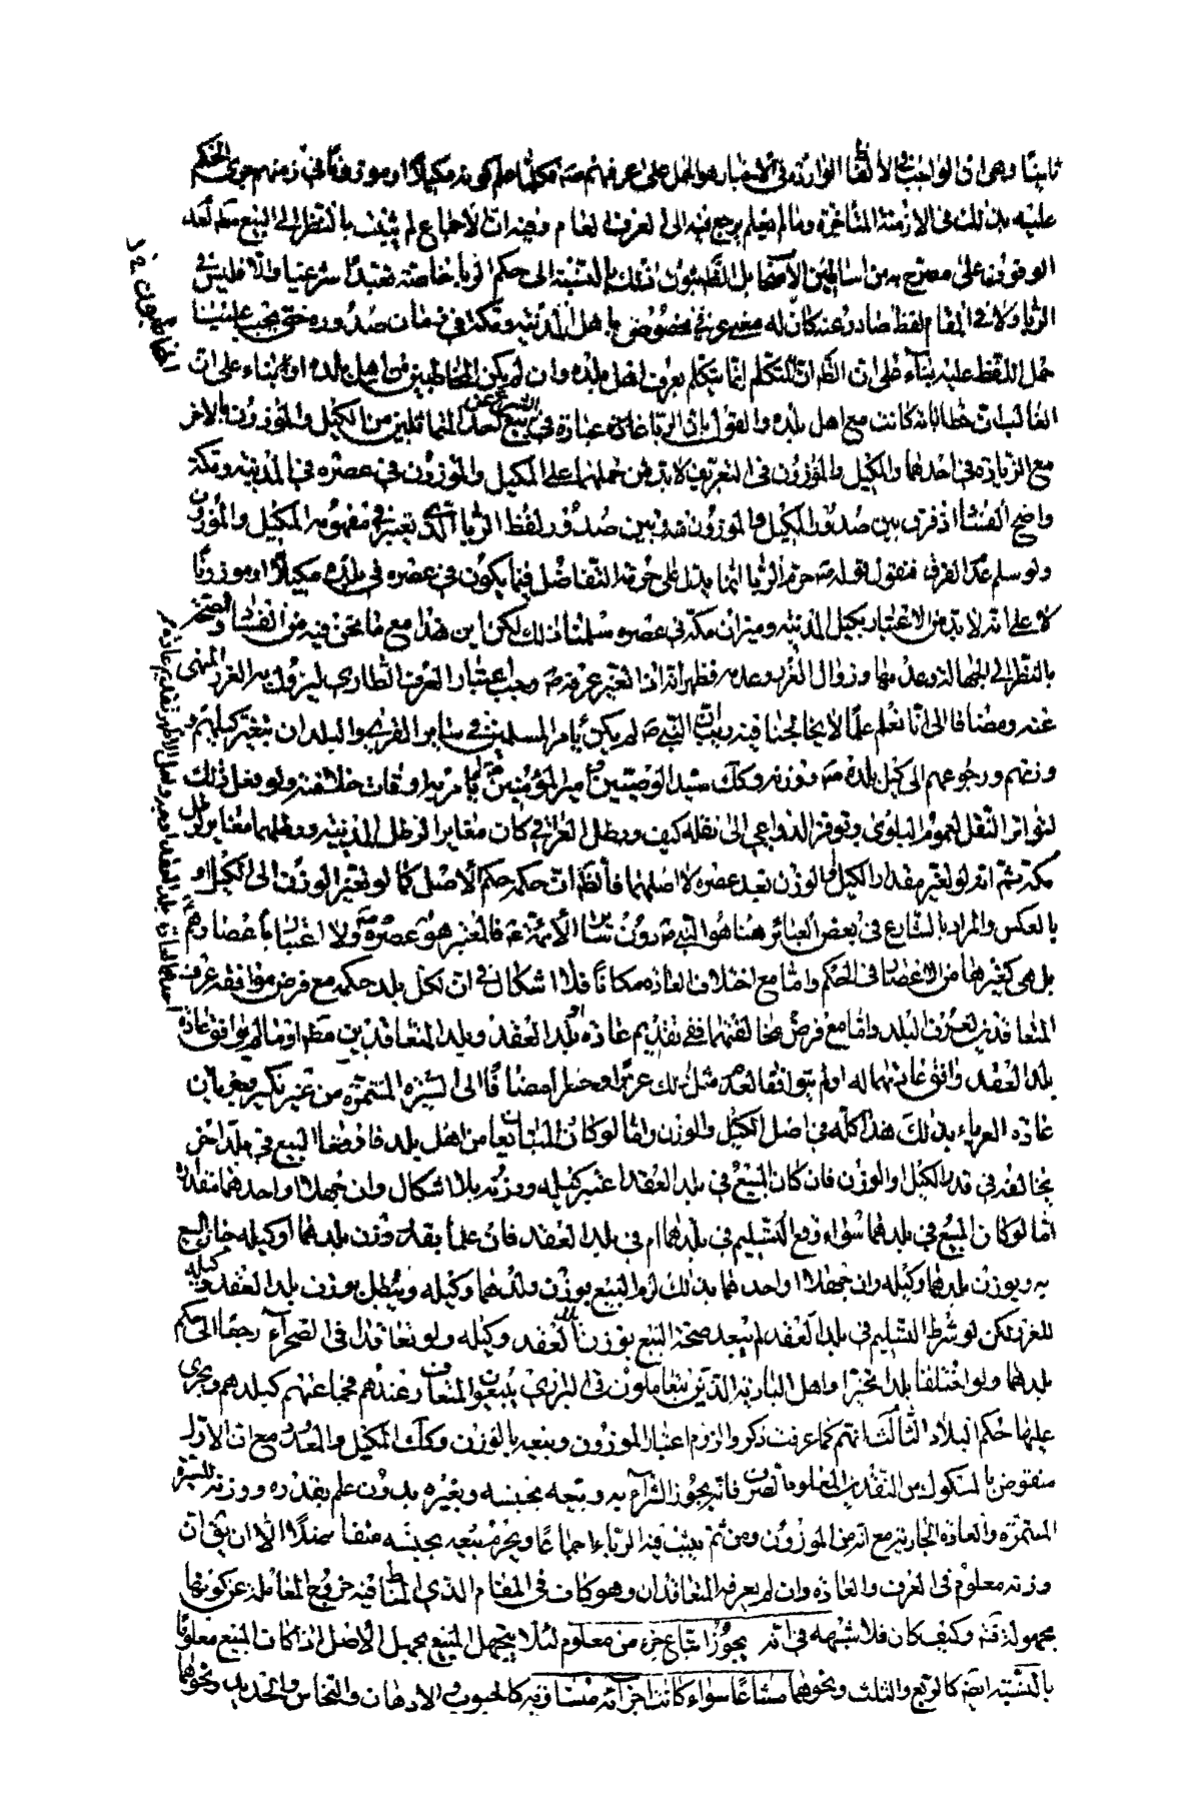 ثابتا وهى ان الواجب فى الالفاظ الواردة فى الاخبار هو الحمل على عرفهم صه فكلما علم كونه مكيلا او موزونا فى زمنهم جرى الحكم
عليه بذلك فى الازمنة المتأخرة وما لم يعلم يرجع فيه الى العرف العام وفيه ان الاجماع لم يثبت بالنظر الى البيع
الوقوف على مصرح به من اساطين الاصحاب بل المظنون ذلك بالنسبة الى حكم الربا خاصة تعبدا شرعيا والا فليس فى
الربا ولا فى المقام لفظ صادر عنه كان له معنى عرفى مخصوص باهل المدينة ومكة فى زمان صدوره حتى يجب علينا
حمل اللفظ عليه بناء على ان الظ ان المتكلم انما يتكلم بعرف اهل بلده وان لم يكن المخاطبين من اهل بلده او بناء على ان
الغالب ان خطاباته كانت مع اهل بلده والقول بان الربا عادة عبارة فى الشرع عن بيع احد المتماثلين من المكيل والموزون بالاخر
مع الزيادة فى احدهما والمكيل والموزون فى التعريف لابد من حملهما على المكيل والموزون فى عصره فى المدينة ومكة
واضح الفساد اذ فرق بين صدور المكيل والموزون منه وبين صدور لفظ الربا الذى يعتبر فى مفهومه المكيل والموزون
ولو سلم عدم الفرق فنقول قوله صه حرم الربا انما يدل على حرمة التفاضل فيما يكون فى عصره فى بلده مكيلا او موزونا
لا على انه لابد من الاعتبار بكيل المدينة وميزان مكة فى عصره سلمنا ذلك لكن اين هذا مع ما نحن فيه من الفساد والصحة
بالنظر الى الجهالة وعدمها وزوال الغرر وعدمه فظهر انه اذا تغير عرفه صه وجب اعتبار العرف الطارى ليزول به الغرر المنهى
عنه ومضافا الى انا نعلم علما لا يخالجنا فيه ريب ان النبى صه لم يكن يأمر المسلمين فى سائر القرى والبلدان بتغيير كيلهم و
وزنهم ورجوعهم الى كيل بلده صه ووزنه وكك سيد الوصيين امير المؤمنين لم يأمر به اوقات خلافته ولو فعل ذلك
لتواتر النقل لعموم البلوى وتوفر الدواعى الى نقله كيف ورطل العراقى كان مغايرا لرطل المدينة ورطلهما مغاير لرطل
مكة ثم انه لو تغير مقدار الكيل والوزن بعد عصره لا اصلهما فالظ ان حكمه حكم الاصل كما لو تغير الوزن الى الكيل او
بالعكس والمراد بالشارع فى بعض العبائر هنا هو النبى صه دون سائر الائمة ع فالمعتبر هو عصره صه ولا اعتبار باعصارهم
بل هى كغيرها من الاعصار فى الحكم واما مع اختلاف العادة مكانا فلا اشكال فى ان لكل بلد حكمه مع فرض موافقة عرف
المتعاقدين لعرف البلد واما مع فرض مخالفتهما ففى تقديم عادة بلد العقد او بلد المتعاقدين مطه او ما لم يوافق عادة
بلد العقد وافق عادتهما له او لم يتوافقا
عادة الغرباء بذلك هذا كله فى اصل الكيل والوزن واما لو كان المتبايعان من اهل بلد فاوقعا البيع فى بلد اخر
يخالفه فى قدر الكيل والوزن فان كان المبيع فى بلد العقد اعتبر كيله ووزنه بلا اشكال وان جهلا او احدهما مقداره
اما لو كان المبيع فى بلدهما سواء وقع التسليم فى بلدهما ام فى بلد العقد فان علما بقدر وزن بلدهما او كيله جاز البيع
به وبوزن بلدهما وكيله وان جهلا او احدهما بذلك لزم البيع بوزن بلدهما وكيله ويبطل بوزن بلد العقد وكيله
للغرر لكن لو شرط التسليم فى بلد العقد لم يبعد صحة البيع بوزن بلد العقد وكيله ولو تعاقدا فى الصحراء رجعا الى حكم
بلدهما ولو اختلفا بلدا تخيرا واهل البادية الذين يتعاملون فى البرارى يتبعون المتعارف عندهم مجامعهم كبلدهم ويجرى
عليها حكم البلاد الثالث انهم كما عرفت ذكروا لزوم اعتبار الموزون وبيعه بالوزن وكك المكيل والمعدود مع ان الاول
منقوض بالمسكوك من النقدين المعلوم الصرف فانه يجوز الشراء به وبيعه بجنسه وبغيره بدون علم بقدره ووزنه للسيرة
المستمرة والعادة الجارية مع انه من الموزون ومن ثم يثبت فيه الربا اجماعا ويحرم بيعه بجنسه متفاضلا الا ان يق ان
وزنه معلوم فى العرف والعادة وان لم يعرفه المتعاقدان وهو كاف فى المقام الذى المناط فيه خروج المعاملة عن كونها
مجهولة فته وكيف كان فلا شبهة فى انه يجوز ابتياع جزء من معلوم لئلا يتجهل المبيع بجهل الاصل اذا كان المبيع معلوما
بالنسبة ايضه كالربع والثلث ونحوهما مشاعا سواء كانت اجزائه متساوية كالحبوب والادهان والنحاس والحديد ونحوها